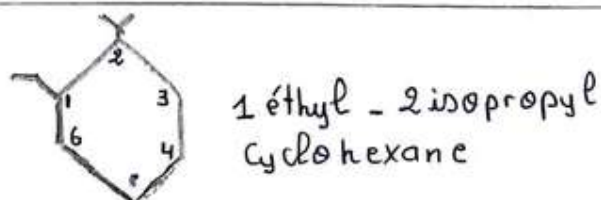 2
1
3
6
4
1 éthyl - 2 isopropyl
Cyclohexane